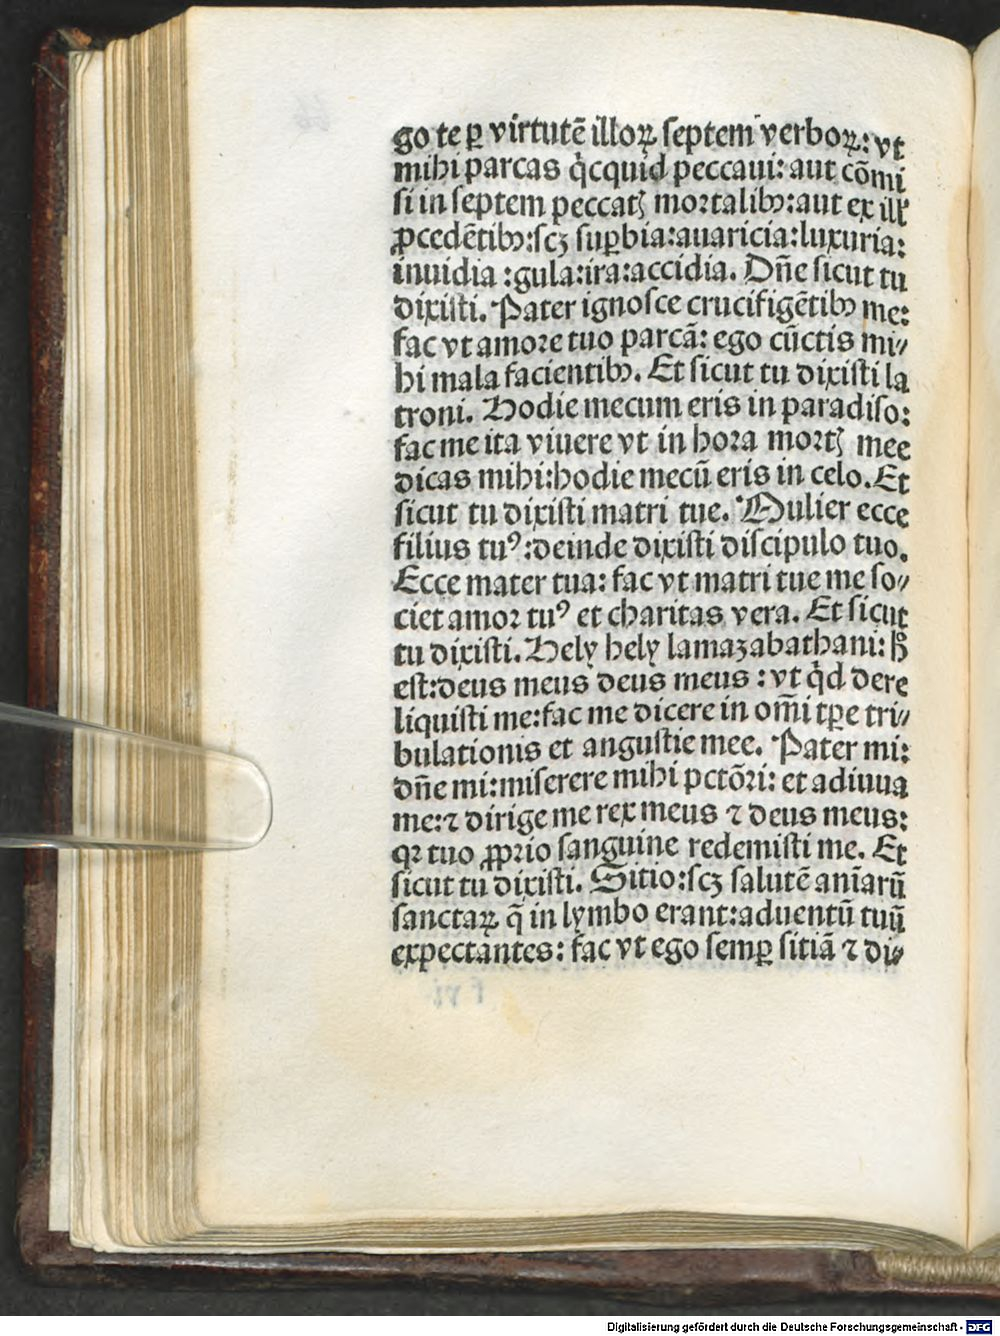 go te ꝑ virtutē illoꝝ ſeptem verboꝝ: vt
mihi parcas qͥcquid peccaui: aut cōmi
ſi in ſeptem peccatꝭ moꝛtalibꝰ: aut ex illꝭ
ꝓcedētibꝰ: ſcꝫ ſuꝑbia: auaricia: luxuria:
inuidia : gula: ira: accidia. Dn̄e ſicut tu
dixiſti. Pater ignoſce crucifigētibꝰ me:
fac vt amoꝛe tuo parcā: ego cūctis mi⸗
hi mala facientibꝰ. Et ſicut tu dixiſti la
troni. Hodie mecum eris in paradiſo:
fac me ita viuere vt in hoꝛa moꝛtꝭ mee
dicas mihi: hodie mecū eris in celo. Et
ſicut tu dixiſti matri tue. Mulier ecce
filius tuꝰ: deinde dixiſti diſcipulo tuo.
Ecce mater tua: fac vt matri tue me ſo⸗
ciet amoꝛ tuꝰ et charitas vera. Et ſicut
tu dixiſti. Hely hely lamazabathani: hͦ
eſt: deus meus deus meus : vt qͥd dere
liquiſti me: fac me dicere in om̄i tꝑe tri⸗
bulationis et anguſtie mee. Pater mi:
dn̄e mi: miſerere mihi pctōri: et adiuua
me: ⁊ dirige me rex meus ⁊ deus meus:
qꝛ tuo ꝓpꝛio ſanguine redemiſti me. Et
ſicut tu dixiſti. Sitio: ſcꝫ ſalutē anīarū
ſanctaꝝ q̄ in lymbo erant: aduentū tuū
expectantes: fac vt ego ſemꝑ ſitiā ⁊ di⸗
Digitalisierung gefördert durch die Deutsche Forschungsgemeinschaft - DFG